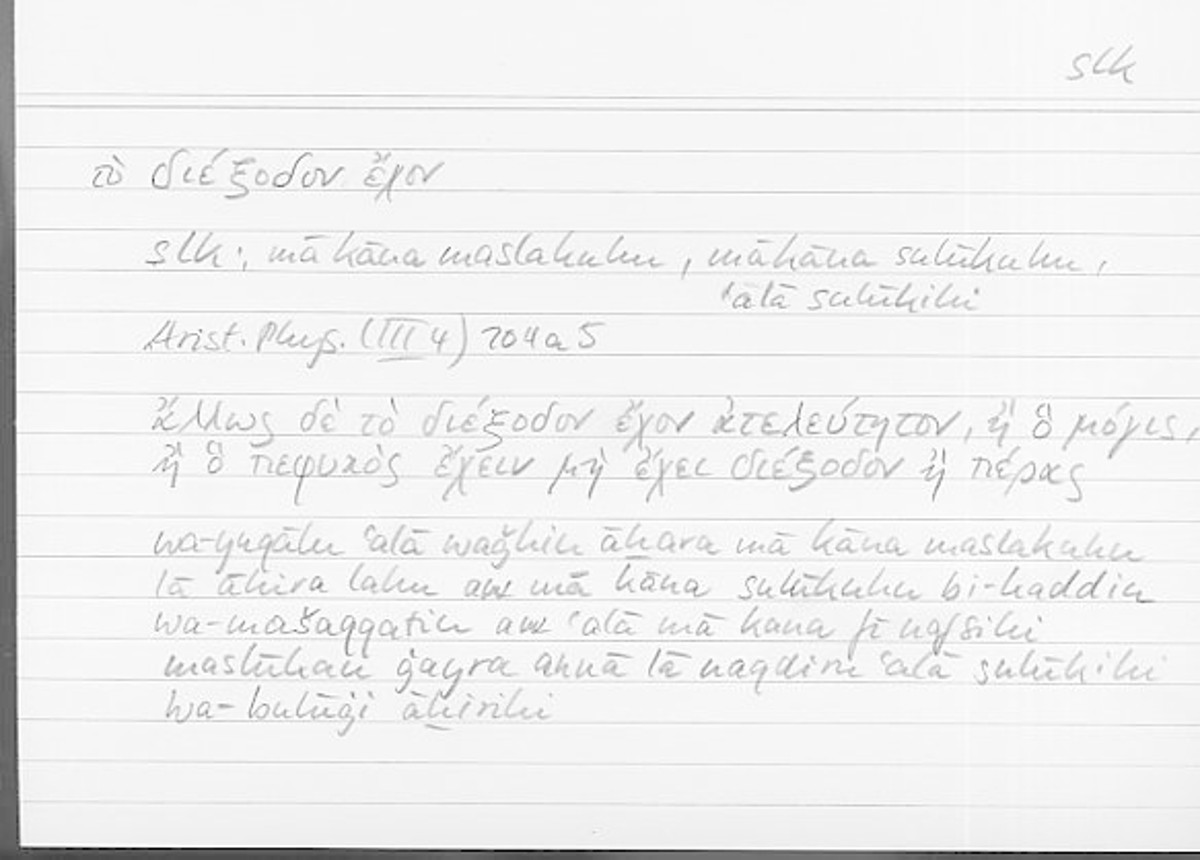 slk
τὸ διέξοδον ἔχον
slk ; mā kāna maslakuhu, mā kāna sulūkuhu,
ʿalā sulūkihi
Arist. Phys. (III 4) 204 a 5
ἄλλως δὲ τὸ διέξοδον ἔχον ἀτελεύτητον, ἢ ὃ μόγις,
ἢ ὃ πεφυκὸς ἔχειν μὴ ἔχει διέξοδον ἢ πέρας
wa-yuqālu ʿalā waǧhin āḫara mā kāna maslakuhu
lā āḫira lahu aw mā kāna sulūkuhu bi-kaddin
wa-mašaqqatin aw ʿalā mā kana fī nafsihi
maslūkan ġayra annā lā naqdiru ʿalā sulūkihi
wa-bulūġi āḫirihi